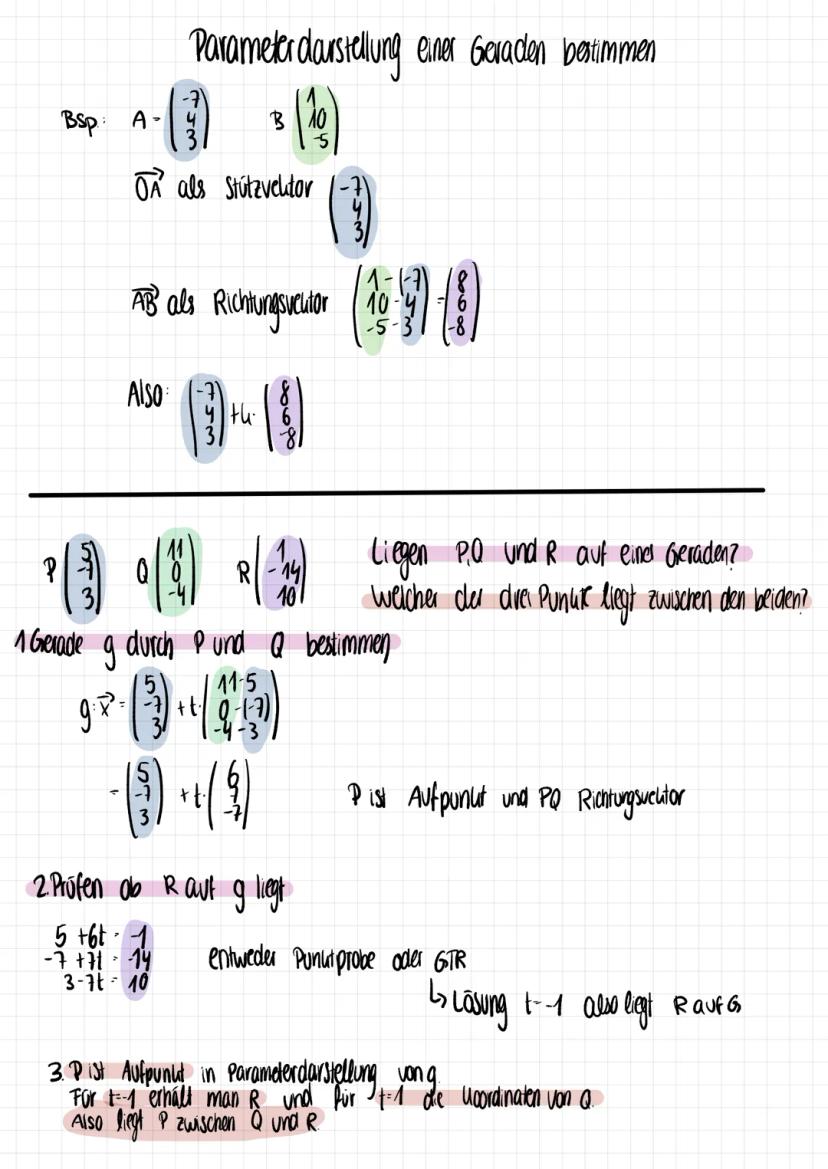 Parameterdarstellung einer Geraden bestimmen
Bsp: A = (-7 4 3) B (1 10 -5)
OA als Stützvektor (-7 4 3)
AB als Richtungsvektor (1-(-7) 10-4 -5-3) = (8 6 -8)
Also: (-7 4 3) + k· (8 6 -8)
P (5 -7 3) Q (11 0 -4) R (1 -14 10) Liegen P,Q und R auf einer Geraden?
Welcher der drei Punkte liegt zwischen den beiden?
1 Gerade g durch P und Q bestimmen
g: x = (5 -7 3) + t· (11-5 0-(-7) -4-3)
= (5 -7 3) + t· (6 7 -7) P ist Aufpunkt und PQ Richtungsvektor
2. Prüfen ob R auf g liegt
5 +6t = -1
-7 +7t = -14 entweder Punktprobe oder GTR
3-7t = 10
↳ Lösung t=-1 also liegt R auf G
3. P ist Aufpunkt in Parameterdarstellung von g.
Für t=-1 erhält man R und für t=1 die Koordinaten von Q.
Also liegt P zwischen Q und R.